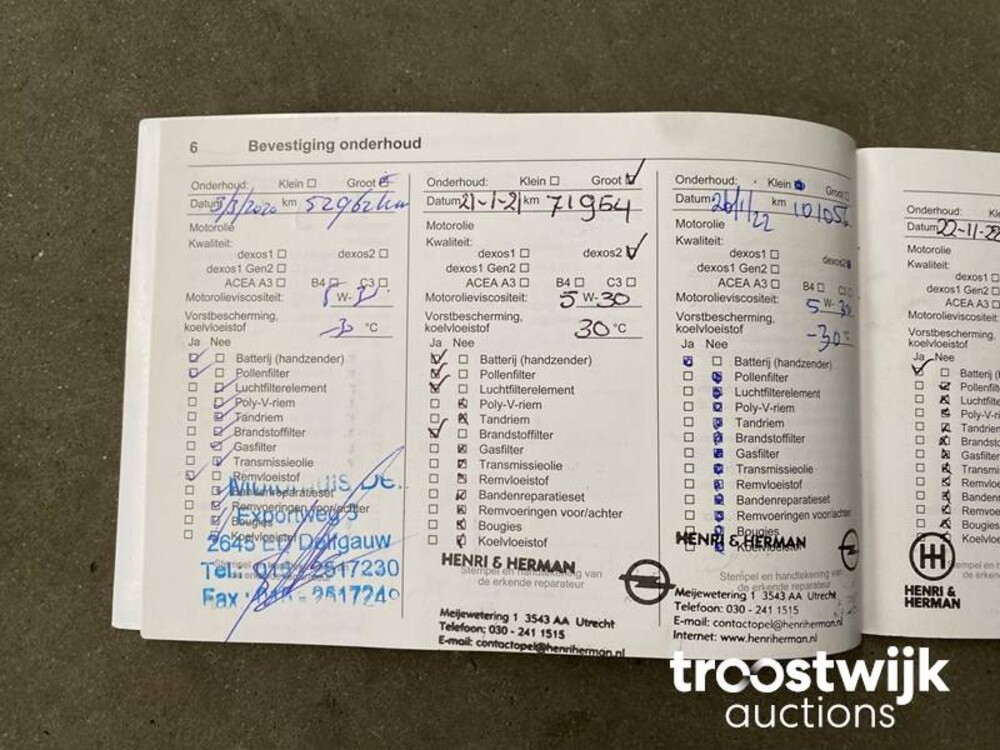 6 Bevestiging onderhoud
Onderhoud: Klein Groot
Datum 3/3/2020 km 52962km
Motorolie
Kwaliteit:
dexos1 dexos2
dexos1 Gen2
ACEA A3 B4 C3
Motorolieviscositeit: W-
Vorstbescherming,
koelvloeistof -30 °C
Ja Nee
Batterij (handzender)
Pollenfilter
Luchtfilterelement
Poly-V-riem
Tandriem
Brandstoffilter
Gasfilter
Transmissieolie
Remvloeistof
Bandenreparatieset
Remvoeringen voor/achter
Bougies
Koelvloeistof
Exportweg
2645 ED Delfgauw
Tel.
Fax
Onderhoud: Klein Groot
Datum 21-1-21 km 71964
Motorolie
Kwaliteit:
dexos1 dexos2
dexos1 Gen2
ACEA A3 B4 C3
Motorolieviscositeit: 5 W-30
Vorstbescherming,
koelvloeistof 30 °C
Ja Nee
Batterij (handzender)
Pollenfilter
Luchtfilterelement
Poly-V-riem
Tandriem
Brandstoffilter
Gasfilter
Transmissieolie
Remvloeistof
Bandenreparatieset
Remvoeringen voor/achter
Bougies
Koelvloeistof
HENRI & HERMAN
Stempel en handtekening van
de erkende reparateur
Meijewetering 1 3543 AA Utrecht
Telefoon: 030 - 241 1515
E-mail: contactopel@henriherman.nl
Onderhoud: Klein Groot
Datum 26/1/22 km
Motorolie
Kwaliteit:
dexos1 dexos2
dexos1 Gen2
ACEA A3 B4 C3
Motorolieviscositeit: 5 W-30
Vorstbescherming,
koelvloeistof -30 °C
Ja Nee
Batterij (handzender)
Pollenfilter
Luchtfilterelement
Poly-V-riem
Tandriem
Brandstoffilter
Gasfilter
Transmissieolie
Remvloeistof
Bandenreparatieset
Remvoeringen voor/achter
Bougies
Koelvloeistof
HENRI & HERMAN
Stempel en handtekening van
de erkende reparateur
Meijewetering 1 3543 AA Utrecht
Telefoon: 030 - 241 1515
E-mail: contactopel@henriherman.nl
Internet: www.henriherman.nl
Onderhoud: Kl
Datum 22-11-22
Motorolie
Kwaliteit:
dexos1
dexos1 Gen2
ACEA A3
Motorolieviscositeit:
Vorstbescherming,
koelvloeistof
Ja Nee
Batterij (
Pollenfilt
Luchtfilte
Poly-V-ri
Tandriem
Brandsto
Gasfilter
Transmis
Remvloe
Bandenr
Remvoe
Bougies
Koelvloe
HH
HENRI &
HERMAN
troostwijk
auctions